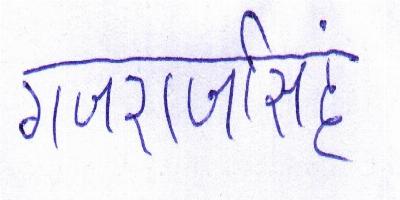 गजराजसिंह